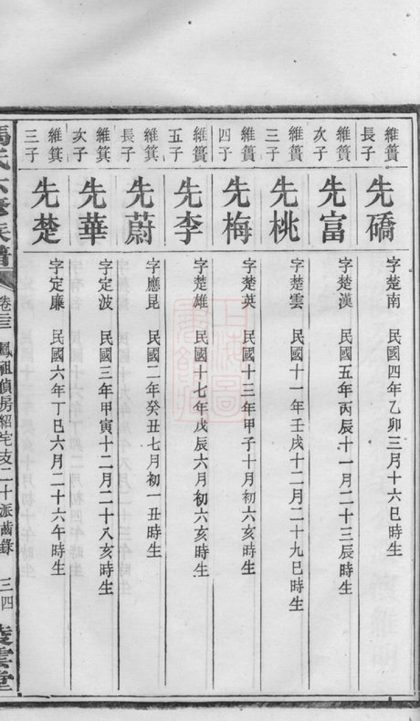 維簣長子
先礄
字楚南　民國四年乙卯三月十六巳時生
維簣次子
先富
字楚漢　民國五年丙辰十一月二十三辰時生
維簣三子
先桃
字楚雲　民國十一年壬戌十二月二十九巳時生
維簣四子
先梅
字楚英　民國十三年甲子十月初六亥時生
維簣五子
先李
字楚雄　民國十七年戊辰六月初六亥時生
維箕長子
先蔚
字應昆　民國二年癸丑七月初一丑時生
維箕次子
先華
字定波　民國三年甲寅十二月二十八亥時生
維箕三子
先楚
字定廉　民國六年丁巳六月二十六午時生
馮氏六修族譜
卷三　鳳祖偵房紹宅支二十派齒錄　三四
凌雲堂